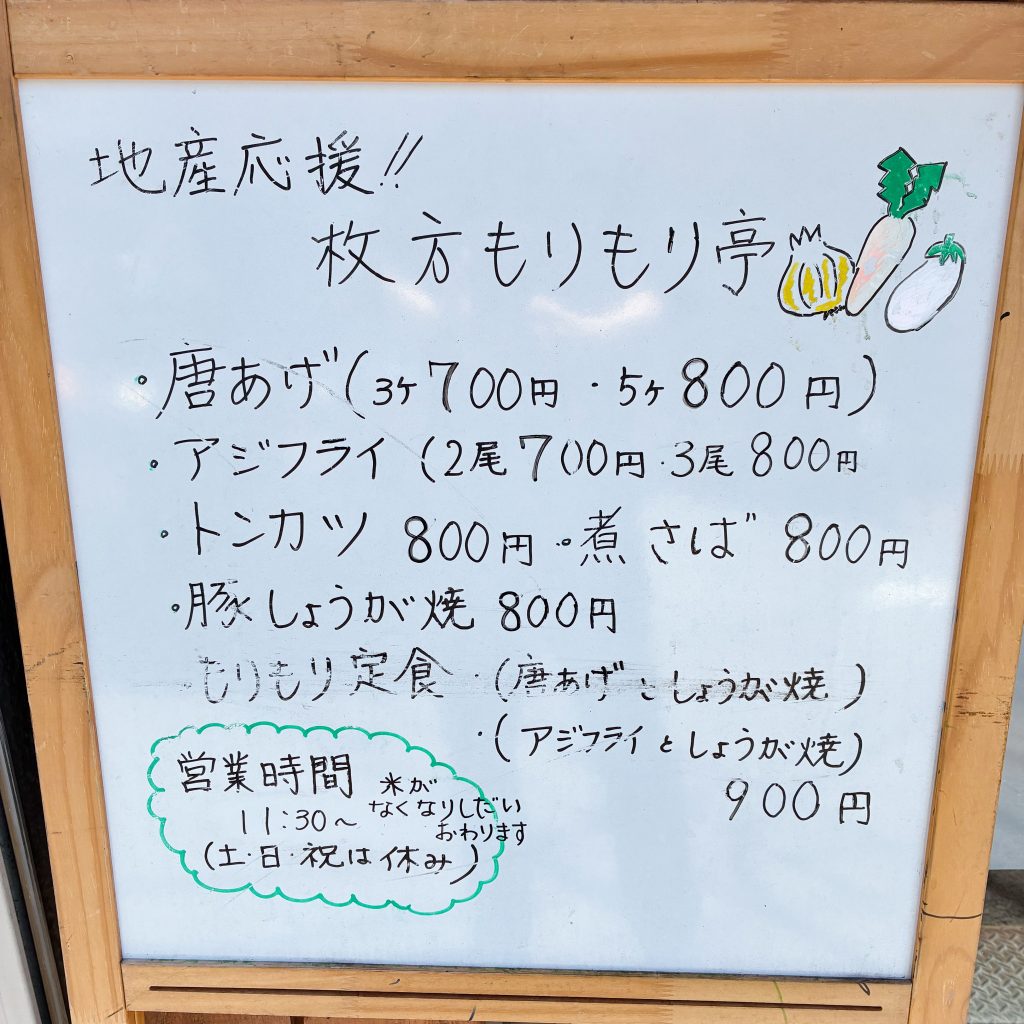 地産応援!!
枚方もりもり亭
・唐あげ(3ケ700円・5ヶ800円)
・アジフライ(2尾700円・3尾800円
・トンカツ 800円・煮さば 800円
・豚しょうが焼 800円
もりもり定食・(唐あげとしょうが焼)
・(アジフライとしょうが焼)
900円
営業時間
11:30~
米が
なくなりしだい
おわります
(土・日・祝は休み)